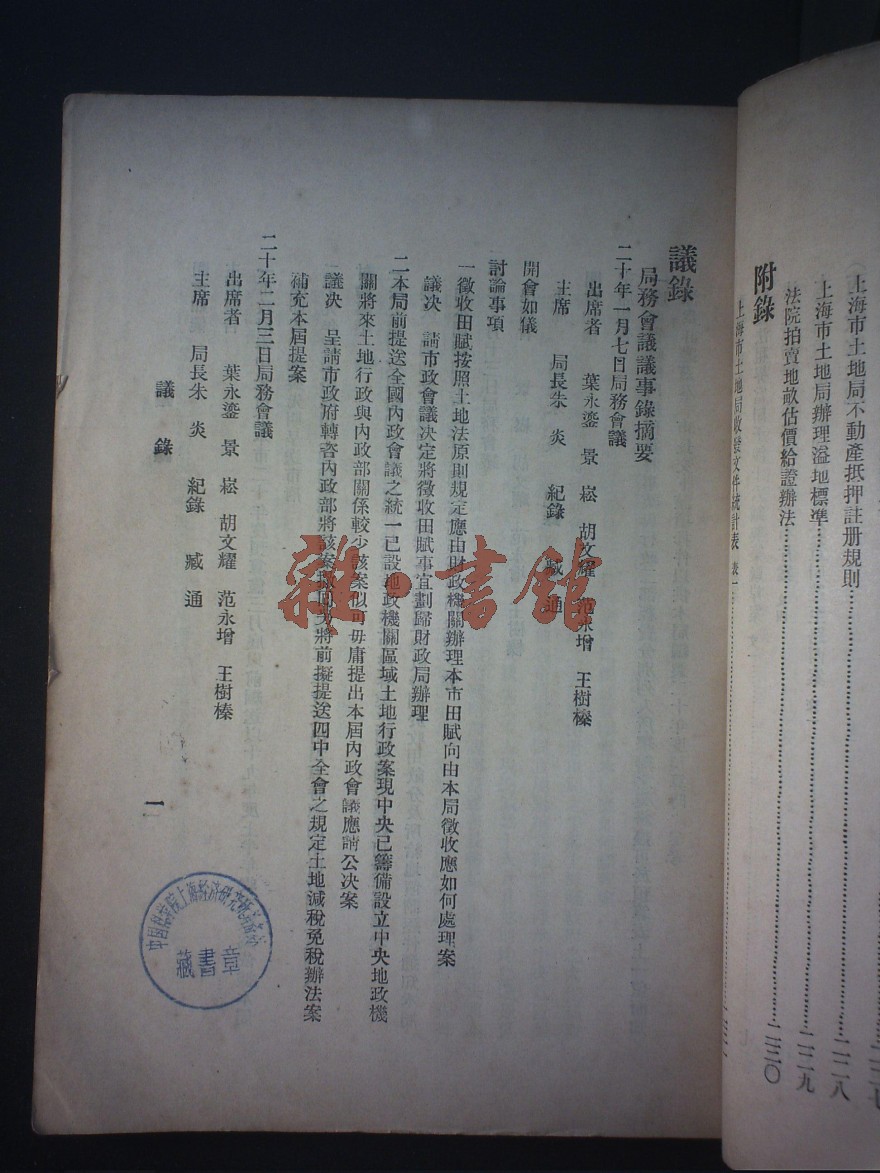 上海市土地局不動產抵押註册規則
上海市土地局辦理溢地標準……二二八
法院拍賣地畝估價給證辦法……二二九
附錄……二三〇
上海市土地局收發文件統計表 表一
議錄
局務會議議事錄摘要
二十年一月七日局務會議
出席者 葉永鎏 景崧 胡文耀 范永增 王樹榛
主席 局長朱炎 紀錄 臧通
開會如儀
討論事項
一徵收田賦按照土地法原則規定應由財政機關辦理本市田賦向由本局徵收應如何處理案
議决 請市政會議决定將徵收田賦事宜劃歸財政局辦理
二本局前提送全國內政會議之統一已設地政機關區域土地行政案現中央已籌備設立中央地政機
關將來土地行政與內政部關係較少該案似可毋庸提出本屆內政會議應請公决案
議决 呈請市政府轉咨內政部將該案撤回另將前擬提送四中全會之規定土地減稅免稅辦法案
補充本屆提案
二十年二月三日局務會議
出席者 葉永鎏 景崧 胡文耀 范永增 王樹榛
主席 局長朱炎 紀錄 臧通
議錄
一
雜·書館
中国科学院上海经济研究所
藏書章